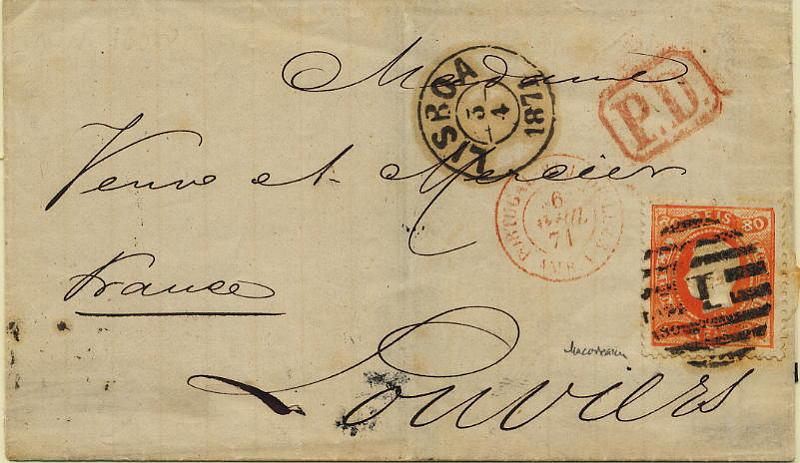 Madame
LISBOA
5
4
1871
P.D.
Veuve et Mercier
PORTUGAL
6
AVRIL
71
AMB.
80
1
France
Louviers